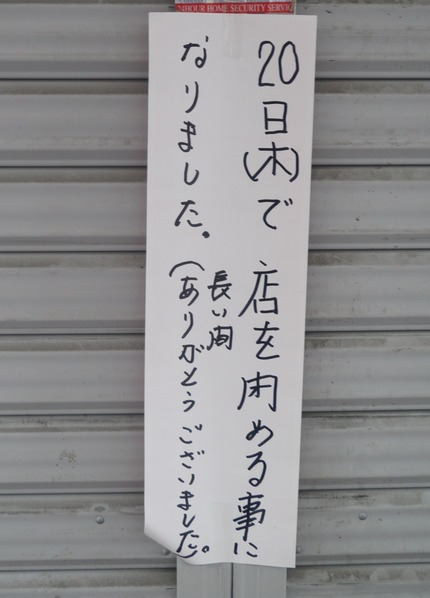 24HOUR HOME SECURITY SERVIC
20日(木)で 店を閉める事に
なりました。
長い間
(ありがとうございました)。